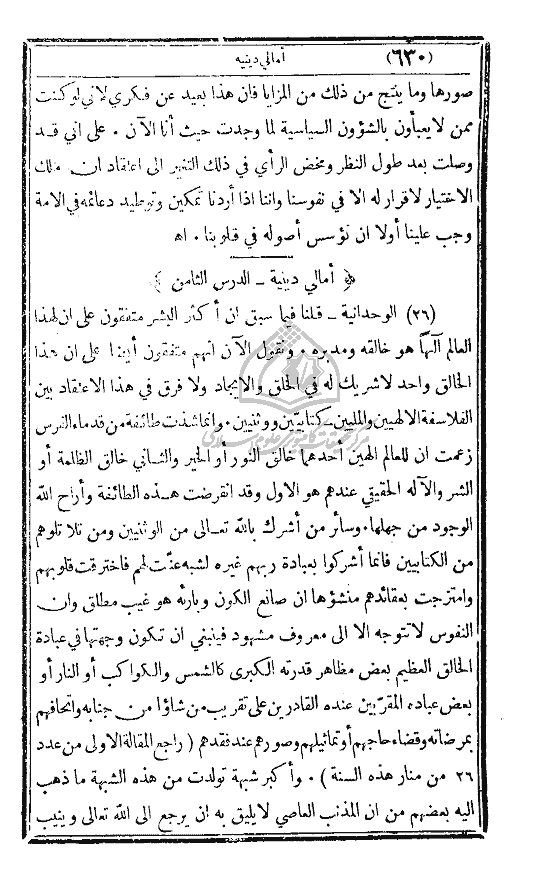 (٦٣٠) أمالي دينيه
صورها وما ينتج من ذلك من المزايا فان هذا بعيد عن فكري لاني لو كنت
ممن لا يعبأون بالشؤون السياسية لما وجدت حيث أنا الآن . على اني قد
وصلت بعد طول النظر ومخض الرأي في ذلك التغير الى اعتقاد ان ملك
الاختيار لاقرار له الا في نفوسنا واننا اذا أردنا تمكين وتوطيد دعائمه في الامة
وجب علينا أولا ان نؤسس أصوله في قلوبنا . اه
﴿ أمالي دينية ـ الدرس الثامن ﴾
(٢٦) الوحدانية ـ قلنا فيما سبق ان أكثر البشر متفقون على ان لهذا
العالم آلهاً هو خالقه ومدبره . ونقول الآن انهم متفقون أيضا على ان هذا
الخالق واحد لاشريك له في الخلق والايجاد ولا فرق في هذا الاعتقاد بين
الفلاسفة الالهيين والمليين ـ كتابيين ووثنيين . وانما شذت طائفة من قدماء الفرس
زعمت ان للعالم الهين أحدهما خالق النور أو الخير والثاني خالق الظلمة أو
الشر والآله الحقيقي عندهم هو الاول وقد انقرضت هذه الطائفة وأراح الله
الوجود من جهلها . وسائر من أشرك بالله تعالى من الوثنيين ومن تلا تلوهم
من الكتابيين فانما أشركوا بعبادة ربهم غيره لشبه عنّت لهم فاخترقت قلوبهم
وامتزجت بعقائدهم منشؤها ان صانع الكون وبارئه هو غيب مطلق وان
النفوس لا تتوجه الا الى معروف مشهود فينبغي ان تكون وجهتها في عبادة
الخالق العظيم بعض مظاهر قدرته الكبرى كالشمس والكواكب أو النار أو
بعض عباده المقرّبين عنده القادرين على تقريب من شاؤا من جنابه واتحافهم
بمرضاته وقضاء حاجهم أو تماثيلهم وصورهم عند فقدهم ( راجع المقالة الاولى من عدد
٢٦ من منار هذه السنة ) . وأكبر شبهة تولدت من هذه الشبهة ما ذهب
اليه بعضهم من ان المذنب العاصي لا يليق به ان يرجع الى الله تعالى وينيب